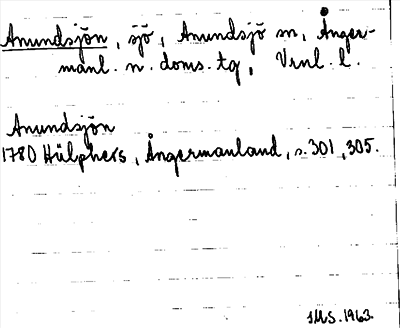 Anundsjön, sjö, Anundsjö sn, Ånger-
manl. n. doms. tg, Vrnl. l.
Anundsjön
1780 Hülphers, Ångermanland, s. 301, 305.
IMS. 1963.